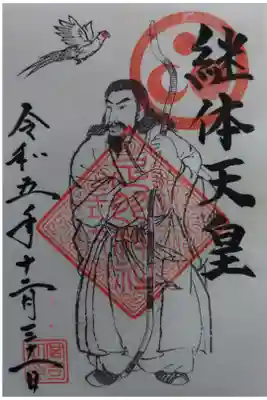 継体天皇
令和五年十二月三十一日